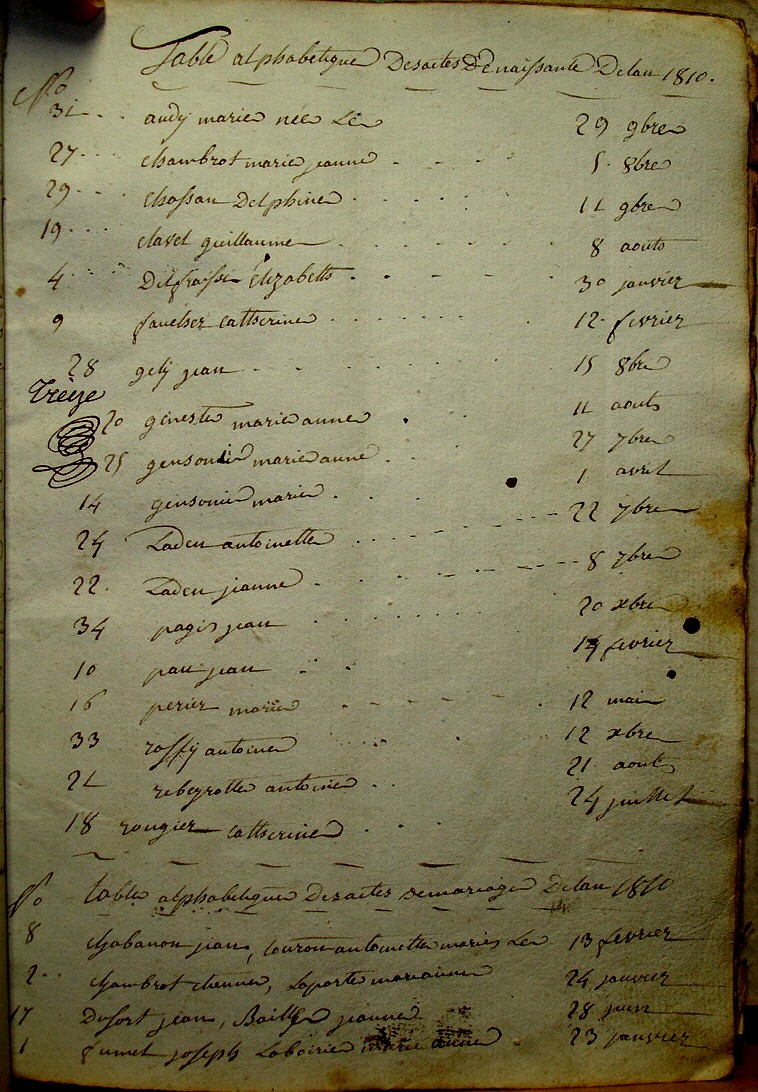 Table alphabetique Des actes De naissance De lan 1810.
No
31 audy marie née Le 29 9bre
27 chambrot marie jeanne 5 8bre
29 chassan Delphine 11 9bre
19 clavel guillaume 8 aout
4 Delfraisse élizabeth 30 janvier
9 faucher catherine 12 fevrier
28 gely jean 15 8bre
Trèze
20 geneste marie anne 11 aout
25 gensonie marie anne 27 7bre
14 gensonie marie 1 avril
24 Laden antoinette 22 7bre
22 Laden jeanne 8 7bre
34 pagis jean 20 xbre
10 pau jean 14 fevrier
16 perier marie 12 mai
33 roffy antoine 12 xbre
21 rebeyrotte antoine 21 aout
18 rougier catherine 24 juillet
No table alphabetique Des actes de mariage De lan 1810
8 chabanon jean, touron antoinette mariés Le 13 fevrier
2 chambrot etienne, Laporte marianne 24 janvier
17 Dufort jean, Bailly jeanne 28 juin
1 fumel joseph Laboirie marie anne 23 janvier